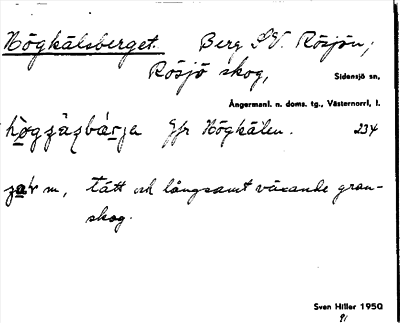 Högkälsberget. Berg S.V. Rösjön,
Rösjö skog, Sidensjö sn,
Ångermanl. n. doms. tg., Västernorrl. l.
Jfr Högkälen. 234
m, tätt och långsamt växande gran-
skog.
Sven Hiller 1950
91